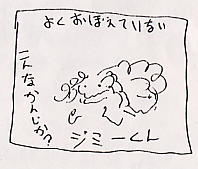 よくおぼえていない
こんなかんじか?
ジミーくん